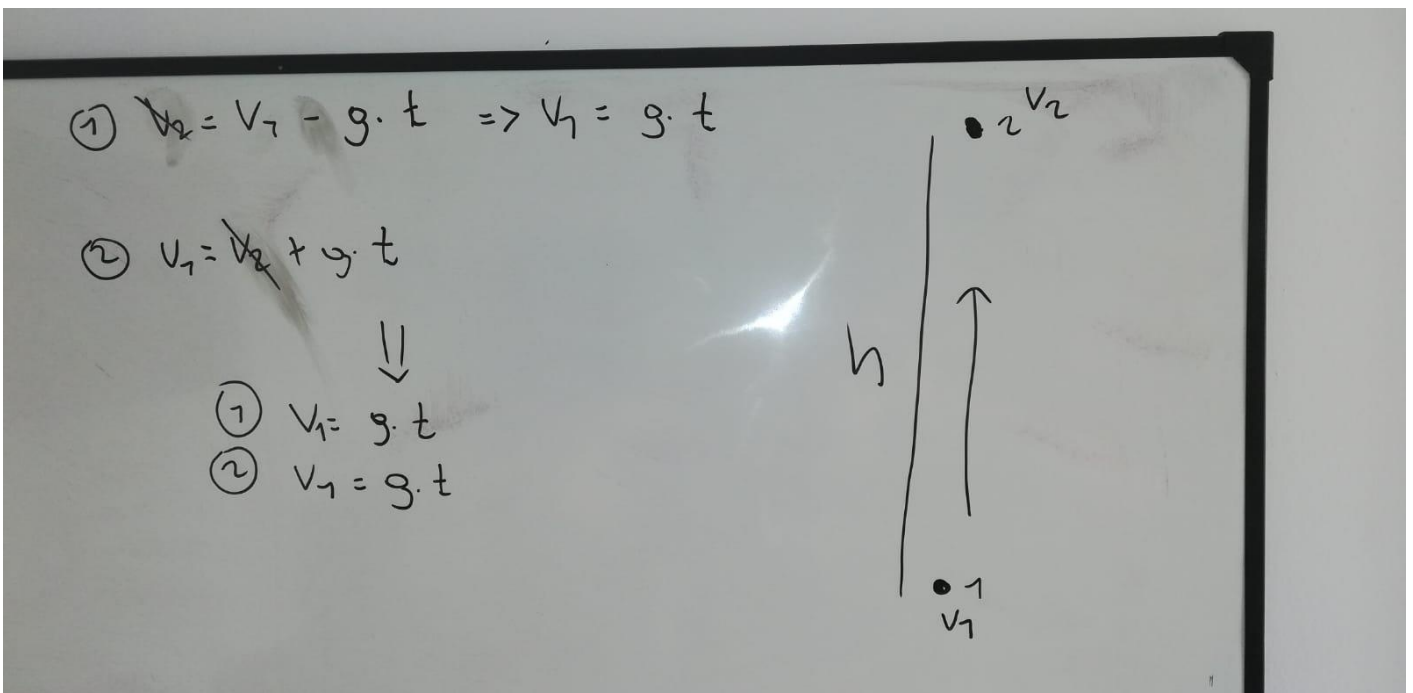 ① V₂ = V₁ - g. t => V₁ = g. t
② V₁ = V₂ + g. t
⇓
① V₁ = g. t
② V₁ = g. t
V₂
2
h
1
V₁